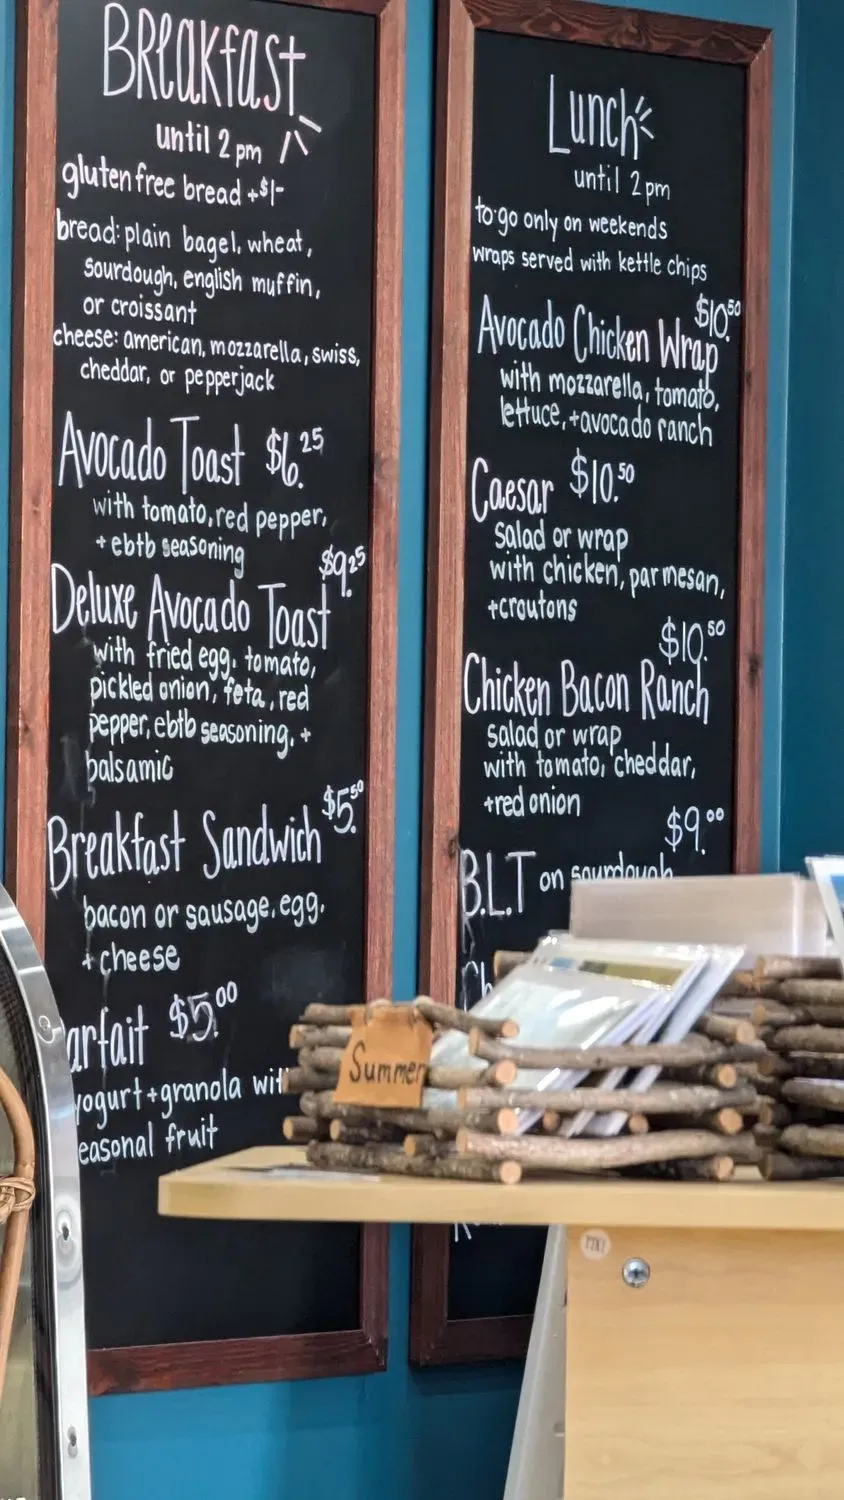 Breakfast
until 2 pm
gluten free bread +$1-
bread: plain bagel, wheat,
sourdough, english muffin,
or croissant
cheese: american, mozzarella, swiss,
cheddar, or pepperjack
Avocado Toast $6.25
with tomato, red pepper,
+ ebtb seasoning
$9.25
Deluxe Avocado Toast
with fried egg, tomato,
pickled onion, feta, red
pepper, ebtb seasoning, +
balsamic
$5.50
Breakfast Sandwich
bacon or sausage, egg,
+ cheese
arfait $5.00
yogurt + granola wit
easonal fruit
Lunch
until 2 pm
to-go only on weekends
wraps served with kettle chips
$10.50
Avocado Chicken Wrap
with mozzarella, tomato,
lettuce, + avocado ranch
Caesar $10.50
salad or wrap
with chicken, parmesan,
+croutons
$10.50
Chicken Bacon Ranch
salad or wrap
with tomato, cheddar,
+red onion
$9.00
B.L.T on sourdough
Ch
Summer